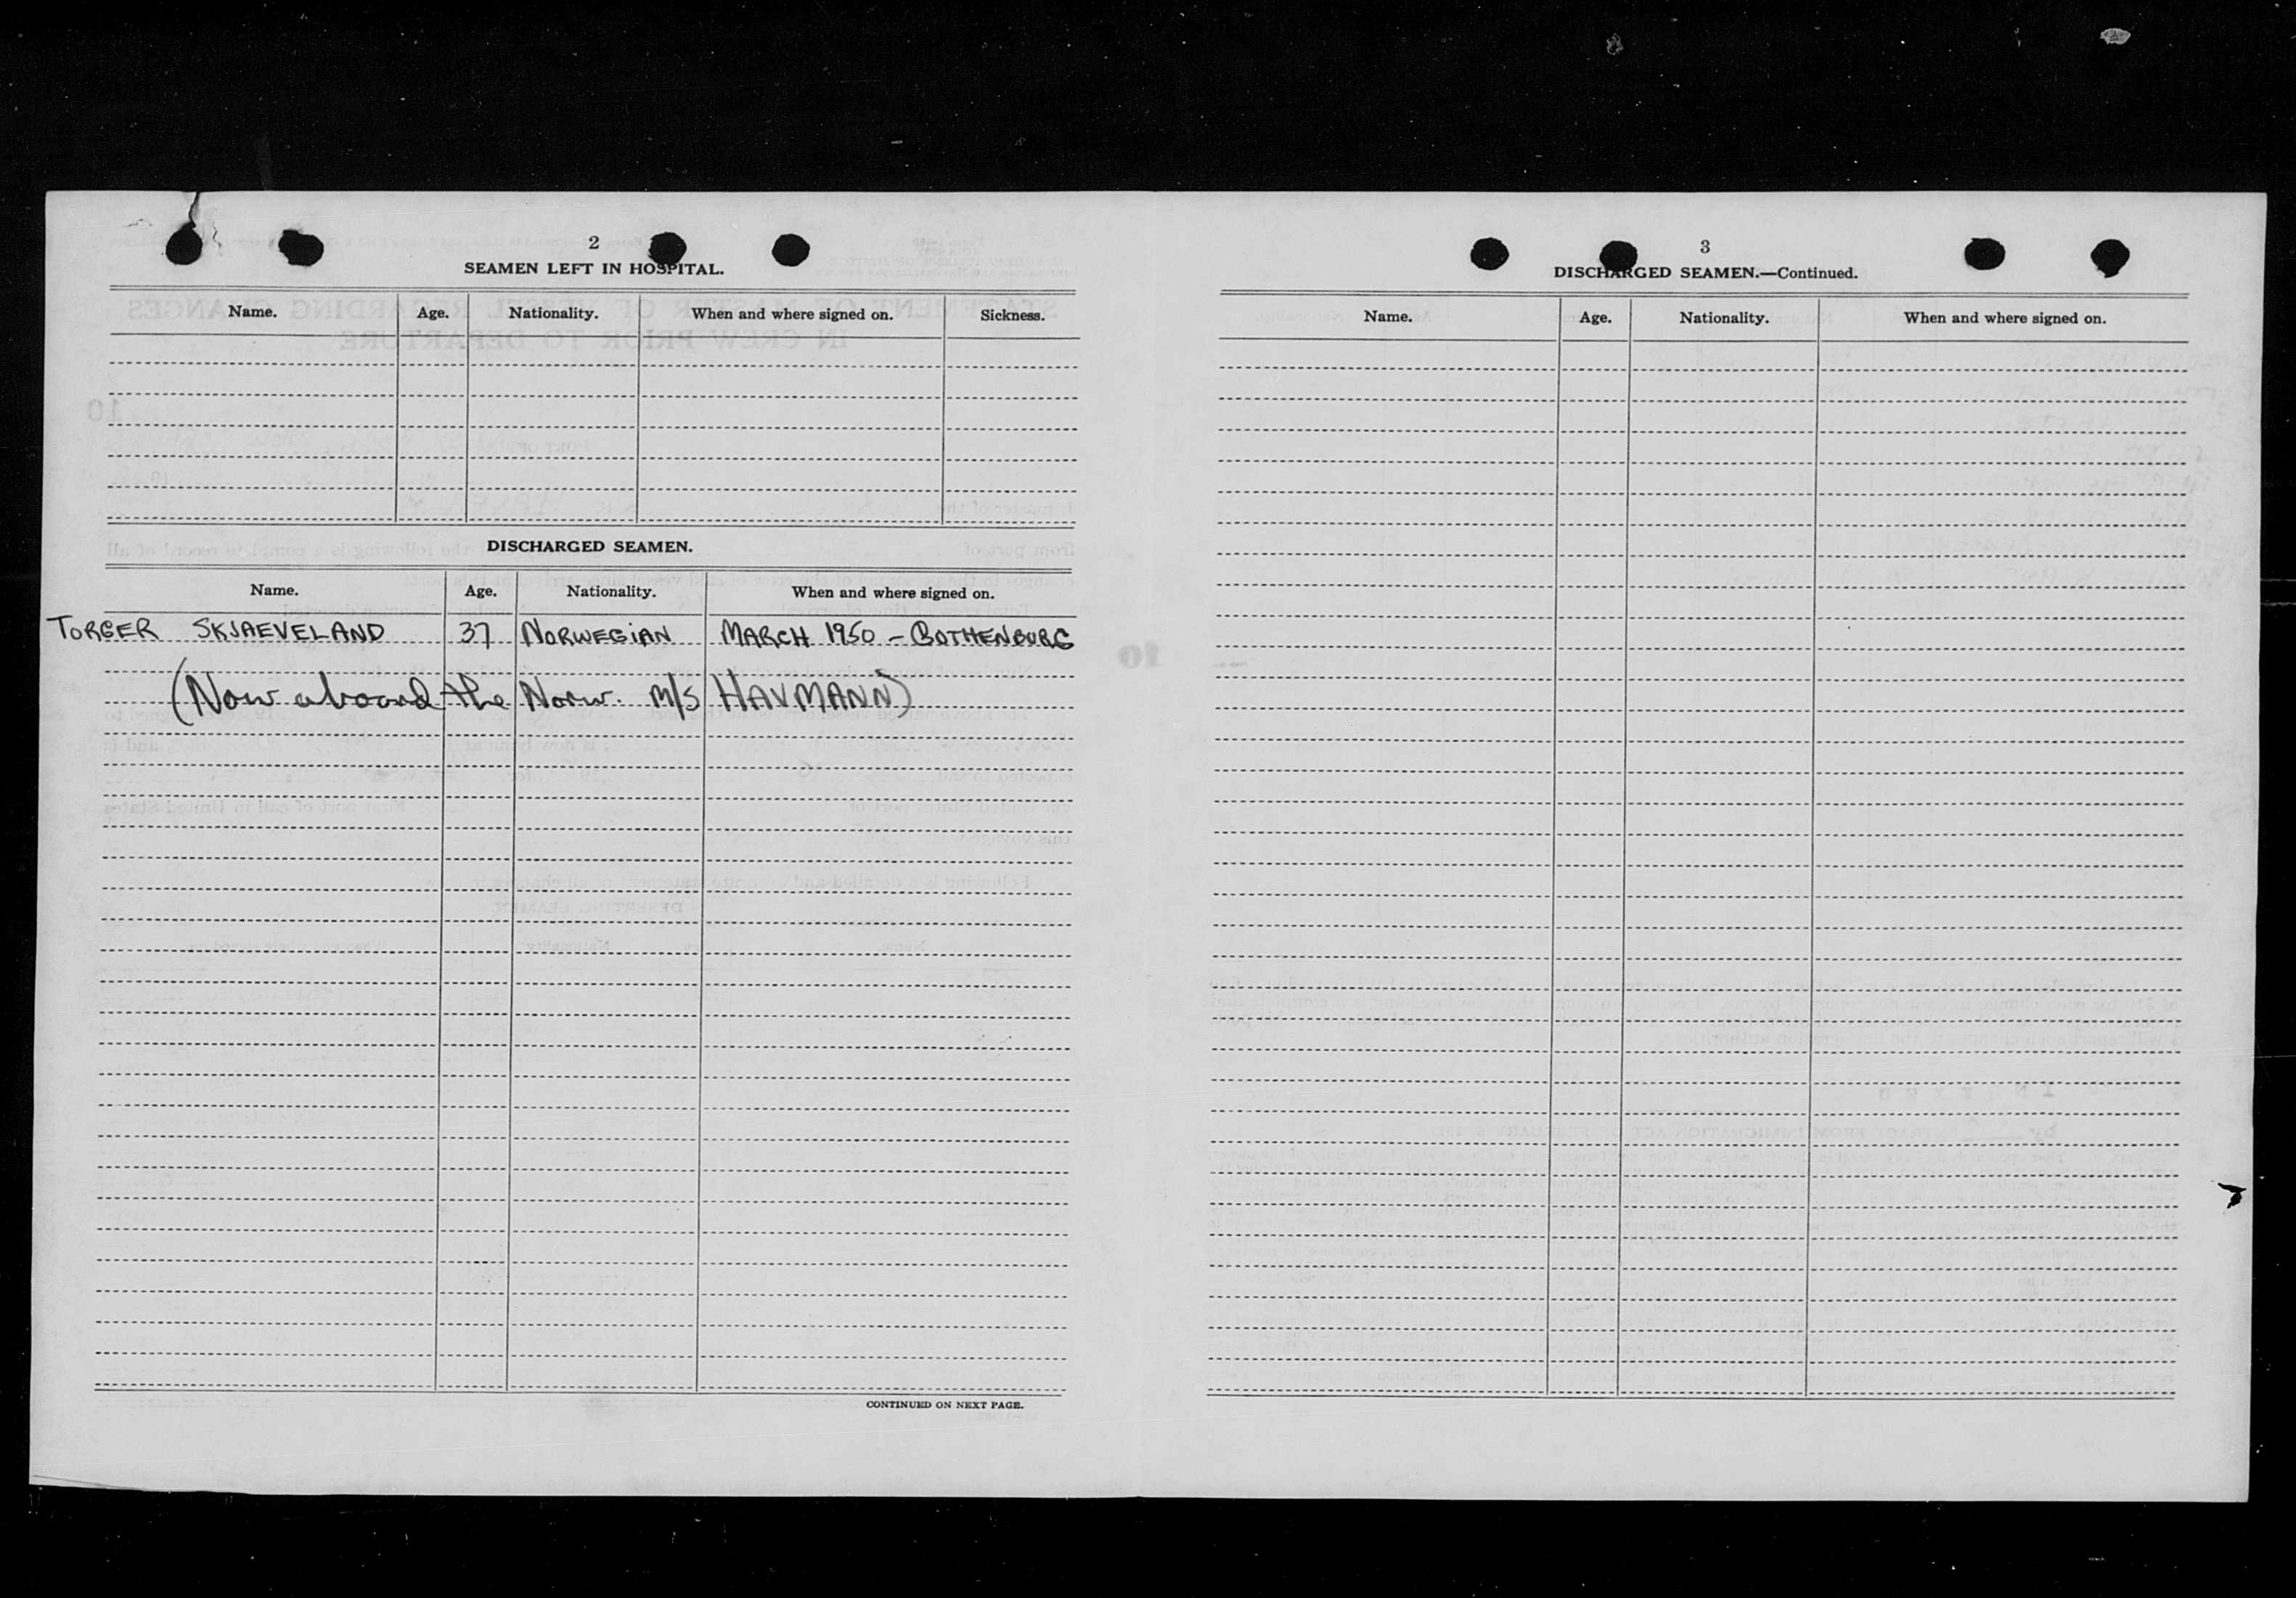 2
SEAMEN LEFT IN HOSPITAL.
Name. Age. Nationality. When and where signed on. Sickness.
DISCHARGED SEAMEN.
Name. Age. Nationality. When and where signed on.
TORGER SKJAEVELAND 37 NORWEGIAN MARCH 1950 - GOTHENBURG
(Now aboard the Norw. M/S HAVMANN)
CONTINUED ON NEXT PAGE.
3
DISCHARGED SEAMEN.—Continued.
Name. Age. Nationality. When and where signed on.